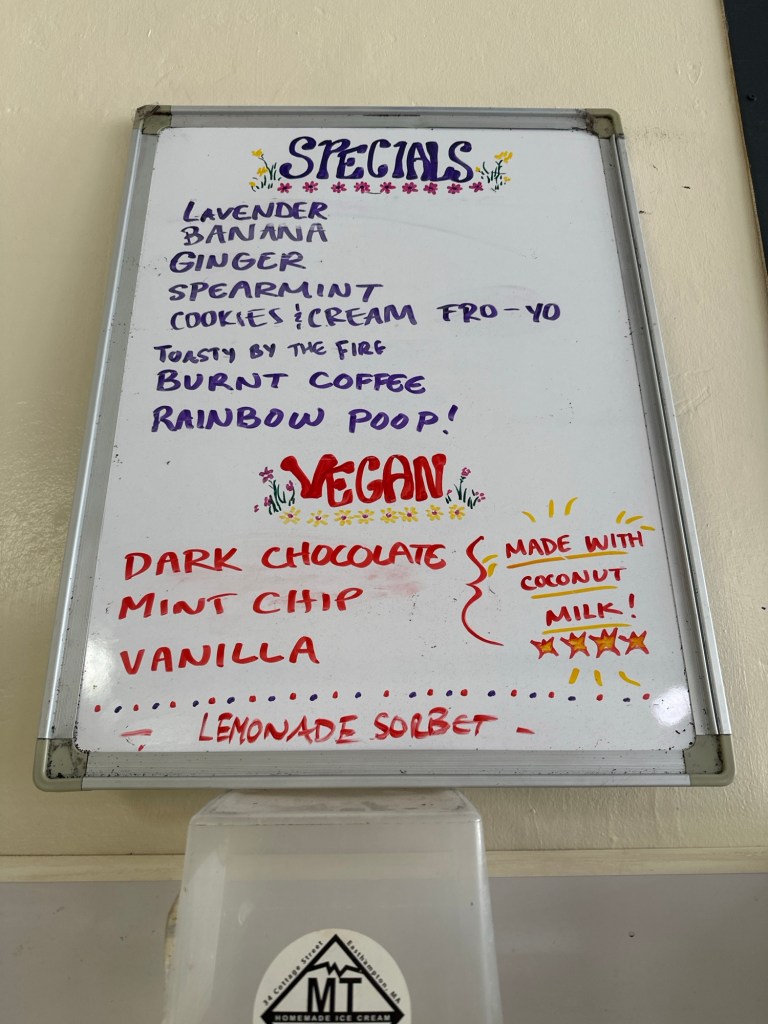 SPECIALS
LAVENDER
BANANA
GINGER
SPEARMINT
COOKIES & CREAM FRO-YO
TOASTY BY THE FIRE
BURNT COFFEE
RAINBOW POOP!
VEGAN
DARK CHOCOLATE
MINT CHIP
VANILLA
MADE WITH
COCONUT
MILK!
- LEMONADE SORBET -
34 Cottage Street Easthampton, MA
MT
HOMEMADE ICE CREAM